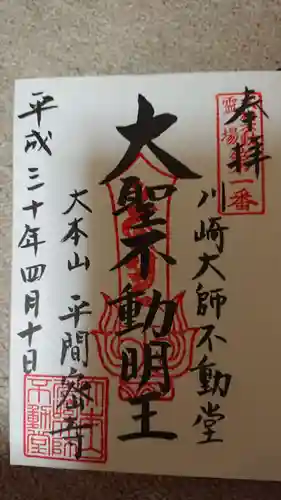 奉拝
霊場
第一番
川崎大師不動堂
大聖不動明王
大本山 平間寺
平成三十年四月十日
不動堂